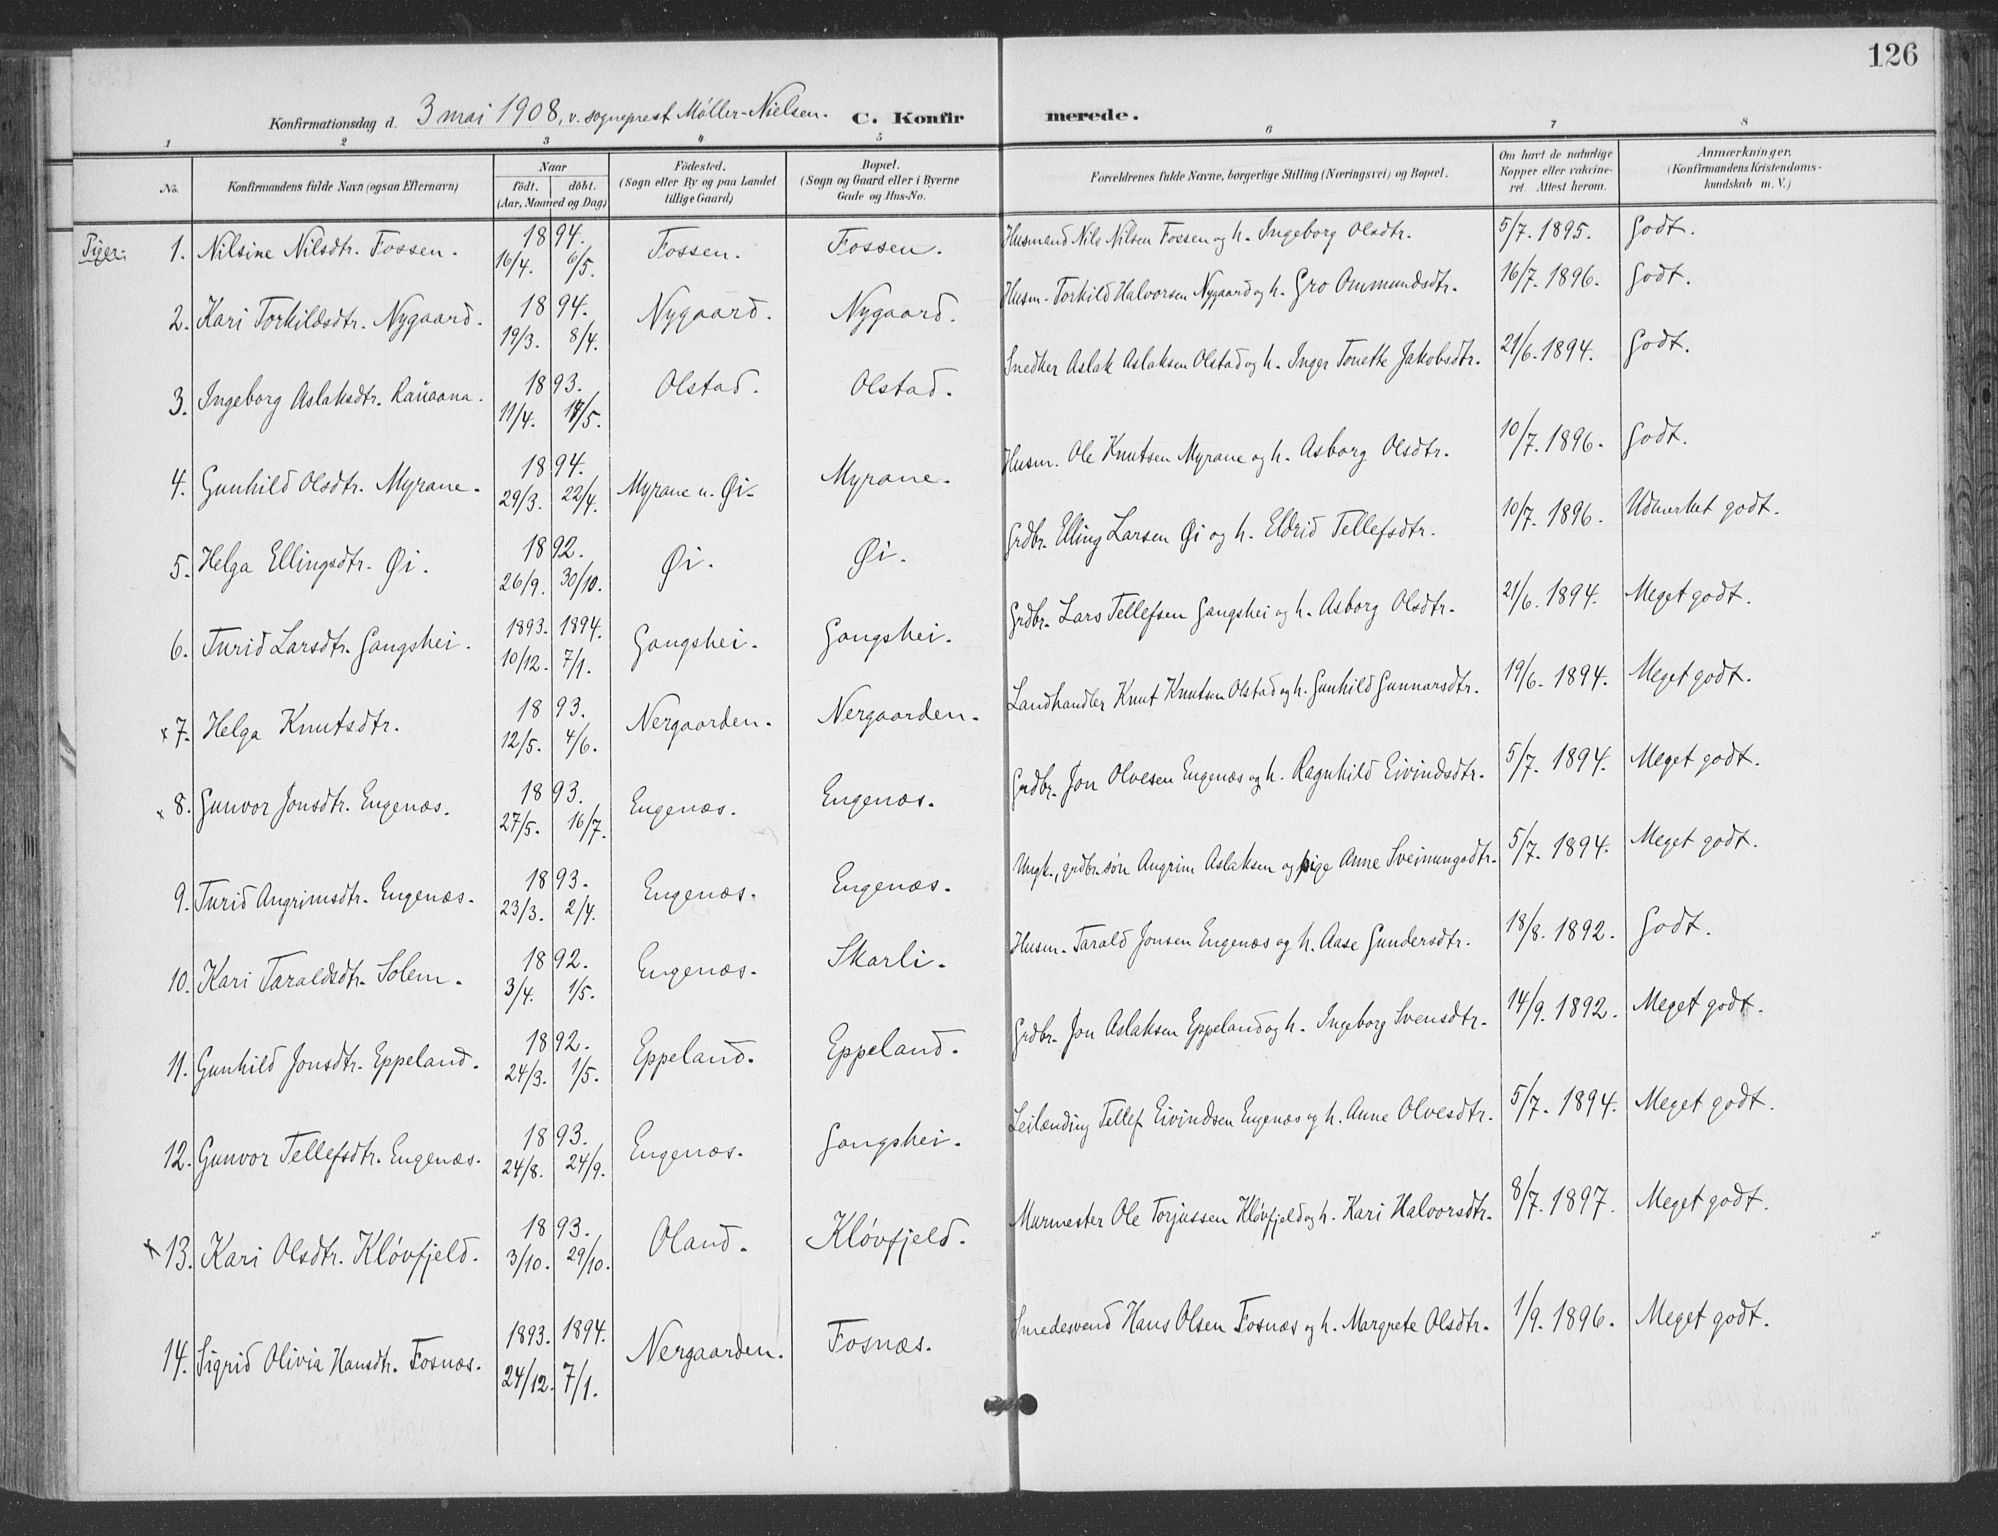 126
Konfirmationsdag d. 3 mai 1908, v. sogneprest Møller-Nielsen. C. Konfirmerede.
1 2 3 4 5 6 7 8
No. Konfirmandens fulde Navn (ogsaa Efternavn) Naar født. døbt. (Aar, Maaned og Dag) Fødested. (Sogn eller By og paa Landet tillige Gaard) Bopæl. (Sogn og Gaard eller i Byerne Gade og Hus-No. Forældrenes fulde Navne, borgerlige Stilling (Næringsvei) og Bopæl. Om havt de naturlige Kopper eller vakcineret. Attest herom. Anmærkninger. (Konfirmandens Kristendomskundskab m. V.)
Piger:
1. Nilsine Nilsdtr. Fossen. 1894. 16/4. 6/5. Fossen. Fossen. Husmand Nils Nilsen Fossen og h. Ingeborg Olsdtr. 5/7. 1895. Godt.
2. Kari Torkildsdtr. Nygaard. 1894. 19/3. 8/4. Nygaard. Nygaard. Husm. Torkild Halvorsen Nygaard og h. Gro Ommundsdtr. 16/7. 1896. Godt.
3. Ingeborg Aslaksdtr. 1893. 11/4. /5. Olstad. Olstad. Snedker Aslak Aslaksen Olstad og h. Inger Tonette Jakobsdtr. 21/6. 1894. Godt.
4. Gunhild Olsdtr. Myrane. 1894. 29/3. 22/4. Myrane u. Øi. Myrane. Husm. Ole Knutsen Myrane og h. Asborg Olsdtr. 10/7. 1896. Godt.
5. Helga Ellingsdtr. Øi. 1892. 26/9. 30/10. Øi. Øi. Grdbr. Elling Larsen Øi og h. Eldrid Tellefsdtr. 10/7. 1896. Udmerket godt.
6. Turid Larsdtr. Gangshei. 1893. 1894. 10/12. 7/1. Gangshei. Gangshei. Grdbr. Lars Tellefsen Gangshei og h. Asborg Olsdtr. 21/6. 1894. Meget godt.
x 7. Helga Knutsdtr. 1893. 12/5. 4/6. Nergaarden. Nergaarden. Landhandler Knut Knutsen Olstad og h. Gunhild Gunnarsdtr. 19/6. 1894. Meget godt.
x 8. Gunvor Jonsdtr. Engenæs. 1893. 27/5. 16/7. Engenæs. Engenæs. Grdbr. Jon Olvesen Engenæs og h. Ragnhild Eivindsdtr. 5/7. 1894. Meget godt.
9. Turid Angrimsdtr. Engenæs. 1893. 23/3. 2/4. Engenæs. Engenæs. Ungk., grdbr.søn Angrim Aslaksen og pige Anne Sveinungsdtr. 5/7. 1894. Meget godt.
10. Kari Taraldsdtr. Solem. 1892. 3/4. 1/5. Engenæs. Skarli. Husm. Tarald Jonsen Engenæs og h. Aase Gundersdtr. 18/8. 1892. Godt.
11. Gunhild Jonsdtr. Eppeland. 1892. 24/3. 1/5. Eppeland. Eppeland. Grdbr. Jon Aslaksen Eppeland og h. Ingeborg Svensdtr. 14/9. 1892. Meget godt.
12. Gunvor Tellefsdtr. Engenæs. 1893. 24/8. 24/9. Engenæs. Gangshei. Leilænding Tellef Eivindsen Engenæs og h. Anne Olvesdtr. 5/7. 1894. Meget godt.
x 13. Kari Olsdtr. Kløvfjeld. 1893. 3/10. 29/10. Oland. Kløvfjeld. Murmester Ole Torjussen Kløvfjeld og h. Kari Halvorsdtr. 8/7. 1897. Meget godt.
14. Sigrid Olivia Hansdtr. Fosnæs. 1893. 1894. 24/12. 7/1. Nergaarden. Fosnæs. Smedesvend Hans Olsen Fosnæs og h. Margrete Olsdtr. 1/9. 1896. Meget godt.